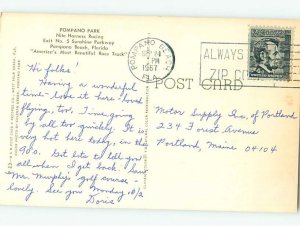 POMPANO PARK
Nite Harness Racing
Exit No. 5 Sunshine Parkway
Pompano Beach, Florida
"America's Most Beautiful Race Track"
Hi folks!
Having a wonderful
time - Love it here - loved
flying, too. Time going
by all too quickly. It is
very hot here today, in the
90s. Got lots to tell you
all when I get back. Saw
Mr. Murphy's golf course -
lovely. See you Monday 10/2
Doris
POMPANO BEACH
SEP 24
PM
1967
FLA.
ALWAYS
ZIP CO
POST CARD
Motor Supply Inc, of Portland
234 Forest Avenue
Portland Maine 04104